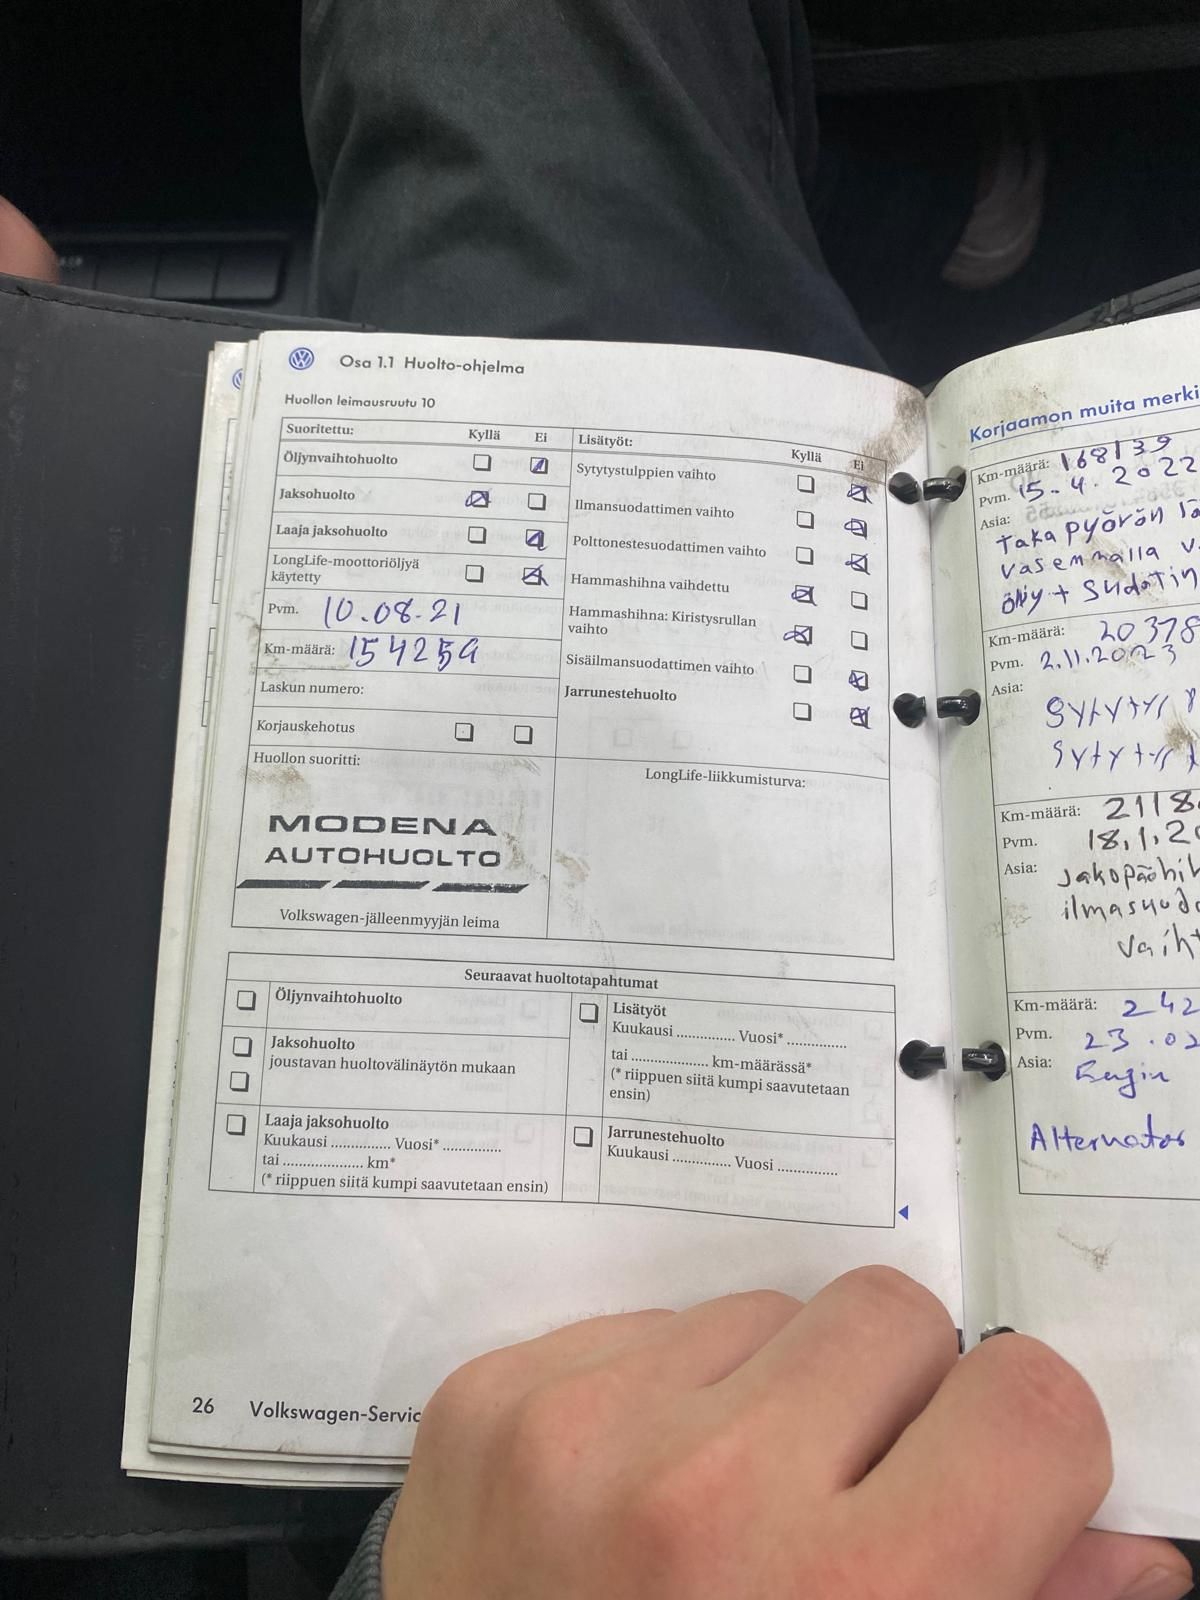 Osa 1.1 Huolto-ohjelma
Huollon leimausruutu 10
Suoritettu: Kyllä Ei
Öljynvaihtohuolto
Jaksohuolto
Laaja jaksohuolto
LongLife-moottoriöljyä
käytetty
Pvm. 10.08.21
Km-määrä: 154259
Laskun numero:
Korjauskehotus
Huollon suoritti:
MODENA
AUTOHUOLTO
Volkswagen-jälleenmyyjän leima
Lisätyöt: Kyllä Ei
Sytytystulppien vaihto
Ilmansuodattimen vaihto
Polttonestesuodattimen vaihto
Hammashihna vaihdettu
Hammashihna: Kiristysrullan
vaihto
Sisäilmansuodattimen vaihto
Jarrunestehuolto
LongLife-liikkumisturva:
Seuraavat huoltotapahtumat
Öljynvaihtohuolto
Jaksohuolto
joustavan huoltovälinäytön mukaan
Laaja jaksohuolto
Kuukausi .............. Vuosi* ..............
tai ..................... km*
(* riippuen siitä kumpi saavutetaan ensin)
Lisätyöt
Kuukausi .............. Vuosi* ..............
tai .................... km-määrässä*
(* riippuen siitä kumpi saavutetaan
ensin)
Jarrunestehuolto
Kuukausi .............. Vuosi ..............
26 Volkswagen-Servic
Korjaamon muita merki
Km-määrä: 168139
Pvm. 15.4.2022
Asia:
Taka pyörän
vasemmalla
öljy +
Km-määrä: 20378
Pvm. 2.11.2023
Asia:
Km-määrä: 2118
Pvm. 18.1.20
Asia: jakopäähih
ilmasuod
vaiht
Km-määrä: 242
Pvm. 23.02
Asia: Engin
Alternator